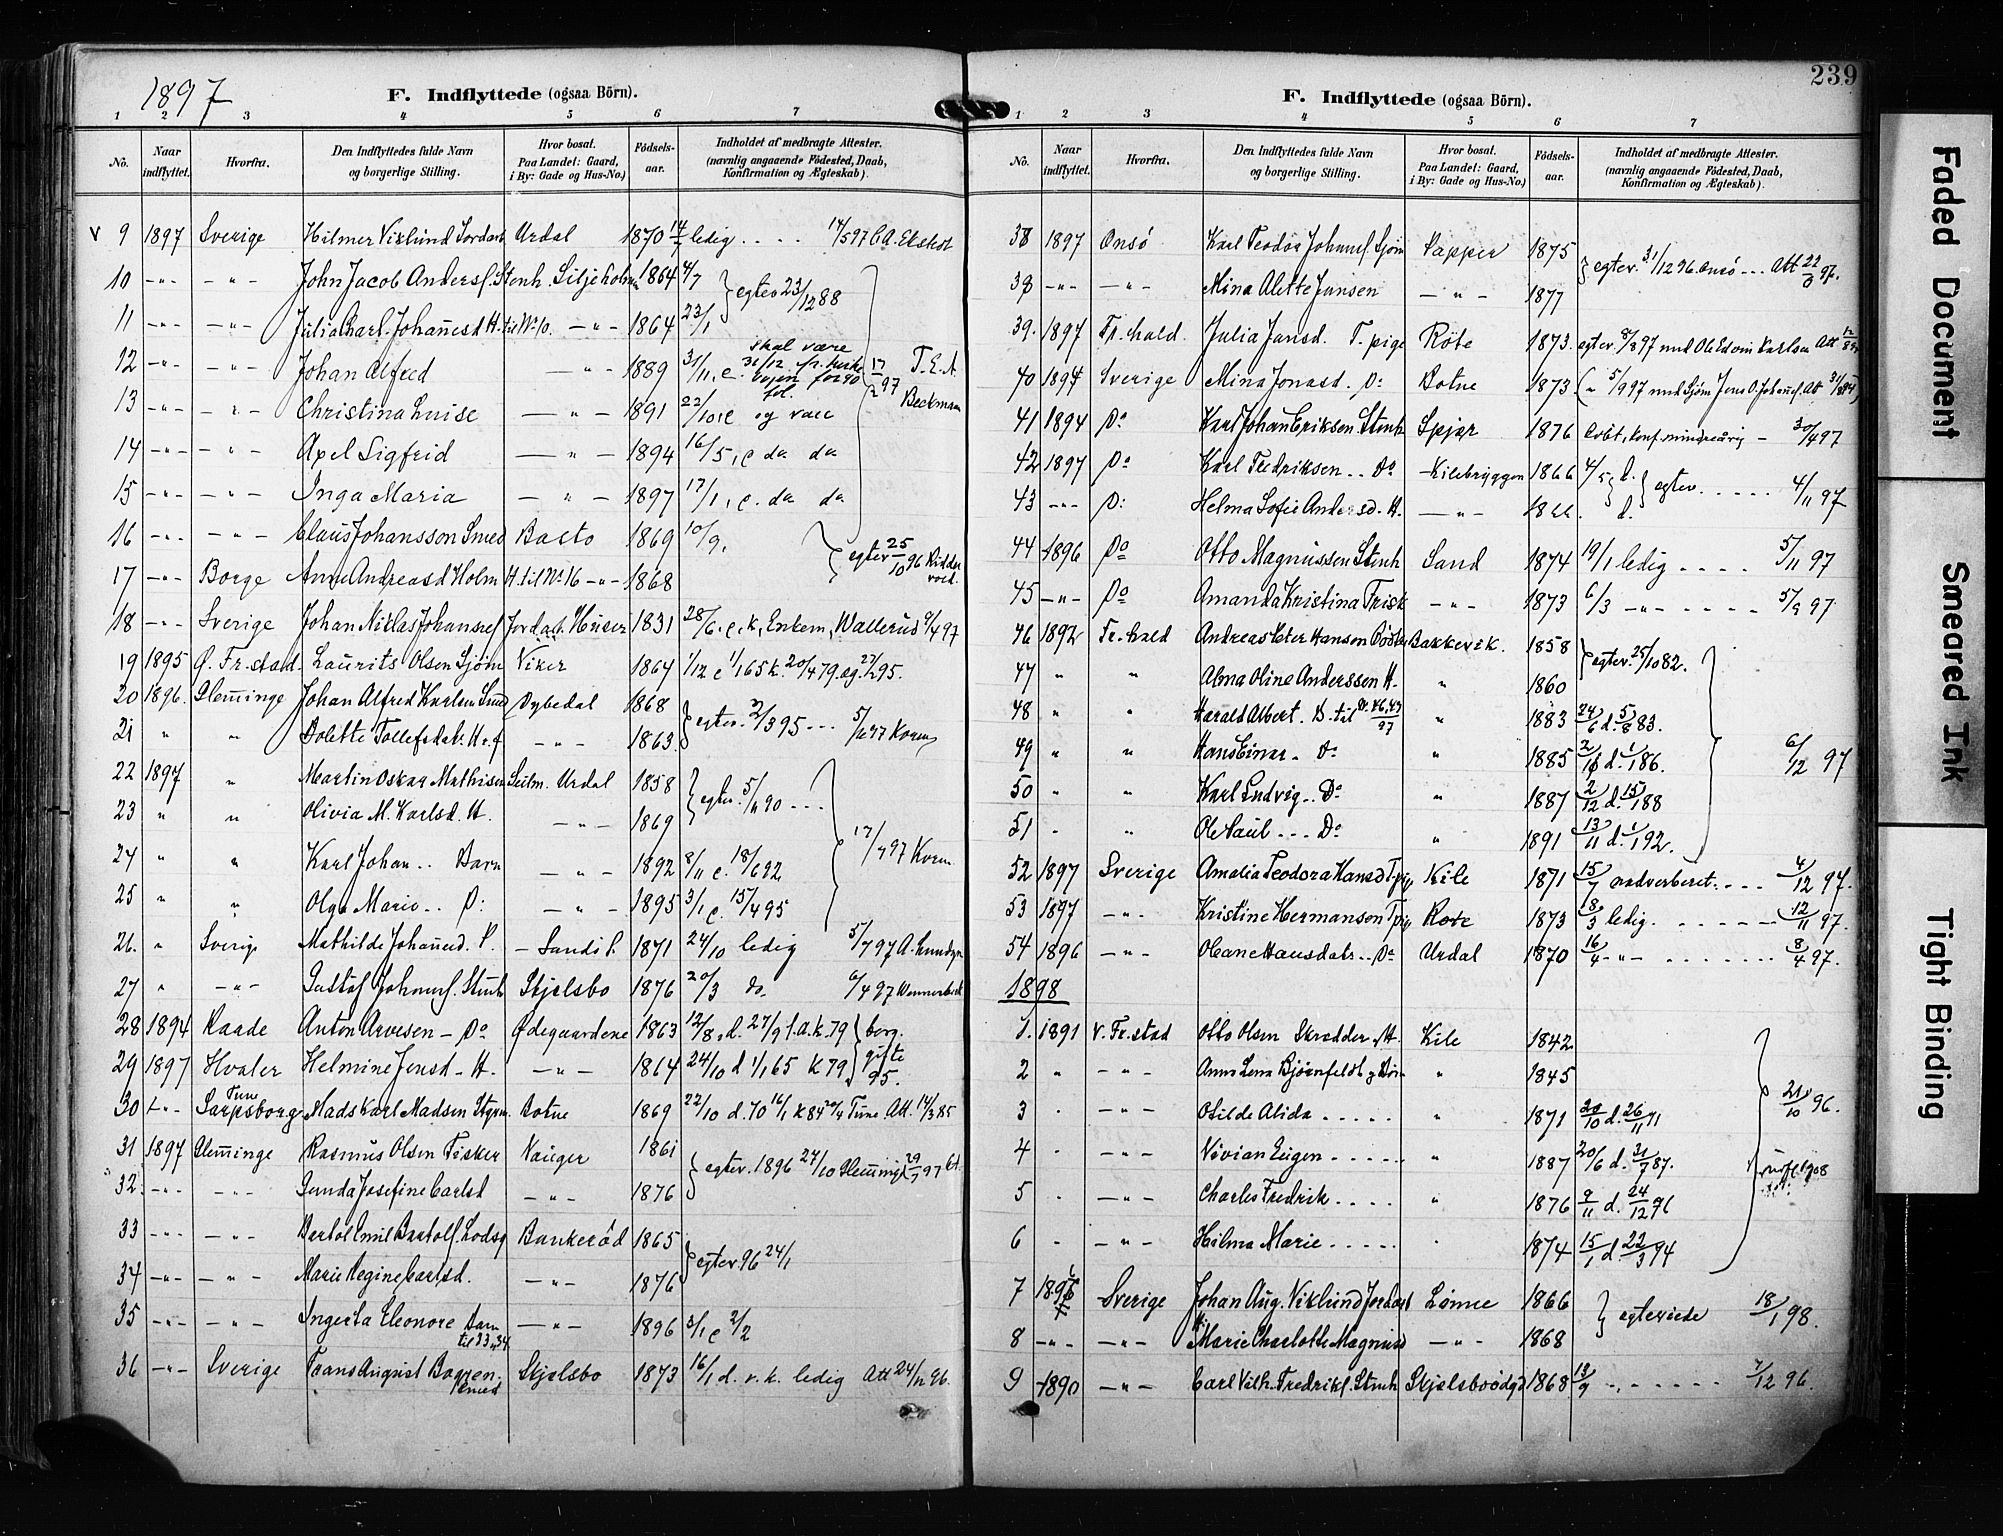 1897
F. Indflyttede (ogsaa Börn).
1 2 3 4 5 6 7
No. Naar indflyttet. Hvorfra. Den Indflyttedes fulde Navn og borgerlige Stilling. Hvor bosat. Paa Landet: Gaard, i By: Gade og Hus-No.) Födsels-aar. Indholdet af medbragte Attester. (navnlig angaaende Födested, Daab, Konfirmation og Ægteskab).
v 9 1897 Sverige Hilmer Viklund Jordarb Urdal 1870 14/7 ledig . . . . 14/5 97 C.A. Ekstedt
10 -"- -"- John Jacob Andersf. Stenh. Siljeholm 1864 4/7 } egtev 23/12 88
11 -"- -"- Julia Carl. Johanesd H. til No 10. -"- 1864 23/1
12 -"- -"- Johan Alfred -"- 1889 31/11, c. skal være 31/12
13 -"- -"- Christina Luise -"- 1891 22/10, c og vacc 17/2 97 T. E. A. Beckman
14 -"- -"- Axel Sigfrid -"- 1894 16/5, c da da
15 -"- -"- Inga Maria -"- 1897 17/1, c. da da
16 -"- -"- Claus Johansson Smed Basto 1869 10/9. } egtev 25/10 96 Riddervold.
17 -"- Borge Anne Andreasd Holm H. til No 16 -"- 1868
18 -"- Sverige Johan Niklas Johansf Jordarb. Huser 1831 28/6. c. k. Enkem, Wallerud 9/4 97
19 1895 Ø. Fr.stad. Laurits Olsen Sjøm Viker 1864 1/12 c 1/1 65 k. 20/4 79. ag. 27/2 95.
20 1896. Glem̄inge Johan Alfred Karlsen Smed Dybedal 1868 } egtev. 3/3 95 --- 5/2 97 Koren
21 " " Dolette Tollefsdatr. H. f -"- 1863.
22 1897 " Martin Oskar Mathisen Seilm. Urdal 1858 } egtev. 5/11 90 ---
23 " " Olivia M. Karlsd. H. -"- 1869
24 " " Karl Johan .. Barn -"- 1892 8/11 c. 18/6 92 17/7 97 Koren
25 " " Olga Marie .. D: -"- 1895 3/1 c. 15/4 95
26. " Sverige Mathilde Johan̄esd. P. - Sand i S. 1871 24/10 ledig 5/7 97 A. Lundgren
27 " -"- Gustaf Johannesf. Stenh Skjelsbo 1876 20/3 do. 6/4 97 Wennerbeck
28 1894 Raade Anton Arvesen - Do Ødegaardene 1863 12/8. d. 27/9 f. a. k. 79 } borg. gifte 95.
29 1897 Hvaler Helmine Jensd - H. -"- 1864 24/10 d 1/1 65 k 79
30 -"- Tune Sarpsborg Mads Karl Madsen Styrm. Botne 1869 22/10 d. 70 16/1 k 84 20/4 Tune Att. 14/3 85
31 1897 Glem̄inge Rasmus Olsen Fisker Nauger 1861 } egtev. 1896 24/10 Glem̄inge 29/7 97
32. -"- -"- Gunda Josefine Carlsd -"- 1876
33 -"- -"- Bertol Emil Bartolf. Lodsg Bankerød 1865 } egtev. 96 24/1
34 -"- -"- Marie Regine Carlsd. -"- 1876
35 -"- Ingerta Eleonore Barn til 33 & 34 -"- 1896 3/1 c 2/2
36 -"- Sverige Frans August Bagren. Smed Skjelsbo 1873 16/1 d. v. k. ledig Att 24/11 96.
239
F. Indflyttede (ogsaa Börn).
1 2 3 4 5 6 7
No. Naar indflyttet. Hvorfra. Den Indflyttedes fulde Navn og borgerlige Stilling. Hvor bosat. Paa Landet: Gaard, i By: Gade og Hus-No.) Födsels-aar. Indholdet af medbragte Attester. (navnlig angaaende Födested, Daab, Konfirmation og Ægteskab).
38 1897 Onsö Karl Teodor Johannesf. Sjøm Papper 1875 } egtev. 31/12 96. Onsö --- Att 22/3 97.
39 -"- -"- Mina Alette Jansen -"- 1877
39. 1897 Fr.hald. Julia Jansd. T. pige Röte 1873. egtev. 8/8 97 med Ole Edvin Karlsen Att 12/8 97
40 1897 Sverige Mina Jonasd. D: Botne 1873. (" 5/9 97 med Sjöm Jens O. Johannesf. Att
41 1894 Do Karl Johan Eriksen. Stenh Spjær 1876 Dobt, konf. mindreårig - 30/4 97
42 1897 Do Karl Fredriksen .. Do -Kilebryggen 1866 4/5 } d. } egtev. . . . . . 4/11 97
43 -"- D: Helma Sofie Andersd. H. -"- 1866. d.
44 1896 Do Otto Magnussen Stenh Sand 1874 19/1 ledig . . . . 5/11 97
45 -"- Do Amanda Kristina Frisk -"- 1873 6/3 -"- . . . . 5/9 97.
46 1892 Fr.hald Andreas Peter Hanson Bakkevik. 1858 } egtev. 25/10 82.
47 " " Alma Oline Anderssen H. " 1860
48 " " Harald Albert. B. til " 1883 24/6 d. 5/8 83.
49 " " Hans Einar. - Do " 1885 2/10 d. 1/1 86. 6/12 97
50 " " Karl Ludvig .. Do " 1887 2/12 d. 15/1 88
51 " " Ole Paul --- Do " 1891 13/11 d. 1/1 92.
52 1897 Sverige Amalia Teodora Hansd T. pig Kile 1871 15/7 nadverberet . . . . 4/12 97.
53 1897 -"- Kristine Hermanson T. pig Røte 1873 18/3 ledig. . . . . . . 12/11 97.
54 1896 -"- Oleane Hansdatr .. Do Urdal 1870 16/4 -"- . . . . . . 8/4 97.
1898
1. 1891 V. Fr.stad Otto Olsen Skredder. M. Kile 1842
2 " -"- Anna Lena Bjørnfeldt " 1845
3 . -"- Otilde Alida . . . . . " 1871 20/10 d. 26/11 71 21/10 96.
4 . -"- Vivian Eigen . . . . . " 1887 20/6 d. 31/7 87.
5 . -"- Charles Fredrik . . . . " 1876 9/11 d. 24/12 76
6 . -"- Hilma Marie . . . . . . 1874 15/1 d. 22/3 74
7 1896 Sverige Johan Aug. Viklund Jordarb Lønne 1866 } egteviede 18/1 98.
8 -"- -"- Marie Charlotte Magnusd -"- 1868
9 1890 -"- Carl Vilh. Fredrikf. Stenh Skjelsboödg 1868 13/9 ". . . . . . 7/12 96.
Faded Document
Smeared Ink
Tight Binding